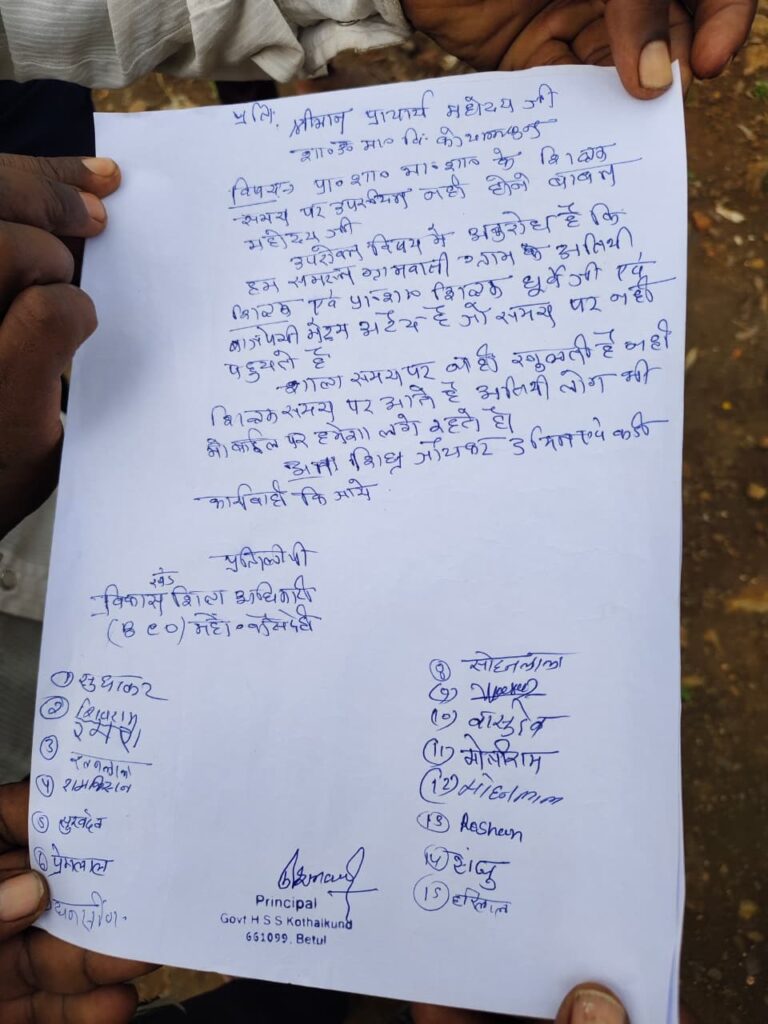 प्रति, श्रीमान प्राचार्य महोदय जी
शा०उ० मा० वि० कोथलकुण्ड
विषय:- प्रा० शा० मा० शा० के शिक्षक
समय पर उपस्थित नही होने बाबत
महोदय जी
उपरोक्त विषय में अनुरोध है कि
हम समस्त ग्रामवासी ग्राम के अतिथी
शिक्षक एवं प्रा० शा० शिक्षक धुर्वे जी एवं
बाजपेयी मैडम है जो समय पर नही
पहुचते है
शाला समय पर नही खुलती है नही
शिक्षक समय पर आते है अतिथी लोग भी
मोबाईल पर हमेशा लगे रहते है।
अतः शिध्र जाँचकर उचित एवं कडी
कार्यवाही कि जाये
प्रतिलीपी
विकास खंड शिक्षा अधिकारी
(BEO) महो० भैंसदेही
① सुधाकर
② शिवराम
③ रतनलाल
④ रामकिशन
⑤ सुखदेव
⑥ प्रेमलाल
धनसींग
⑧ सोहनलाल
⑨
(10) वासुदेव
(11) मोतीराम
(12) मोहनलाल
(13) Roshan
(14) संजु
(15) हरिलाल
Principal
Govt H.S S Kothalkund
661099, Betul